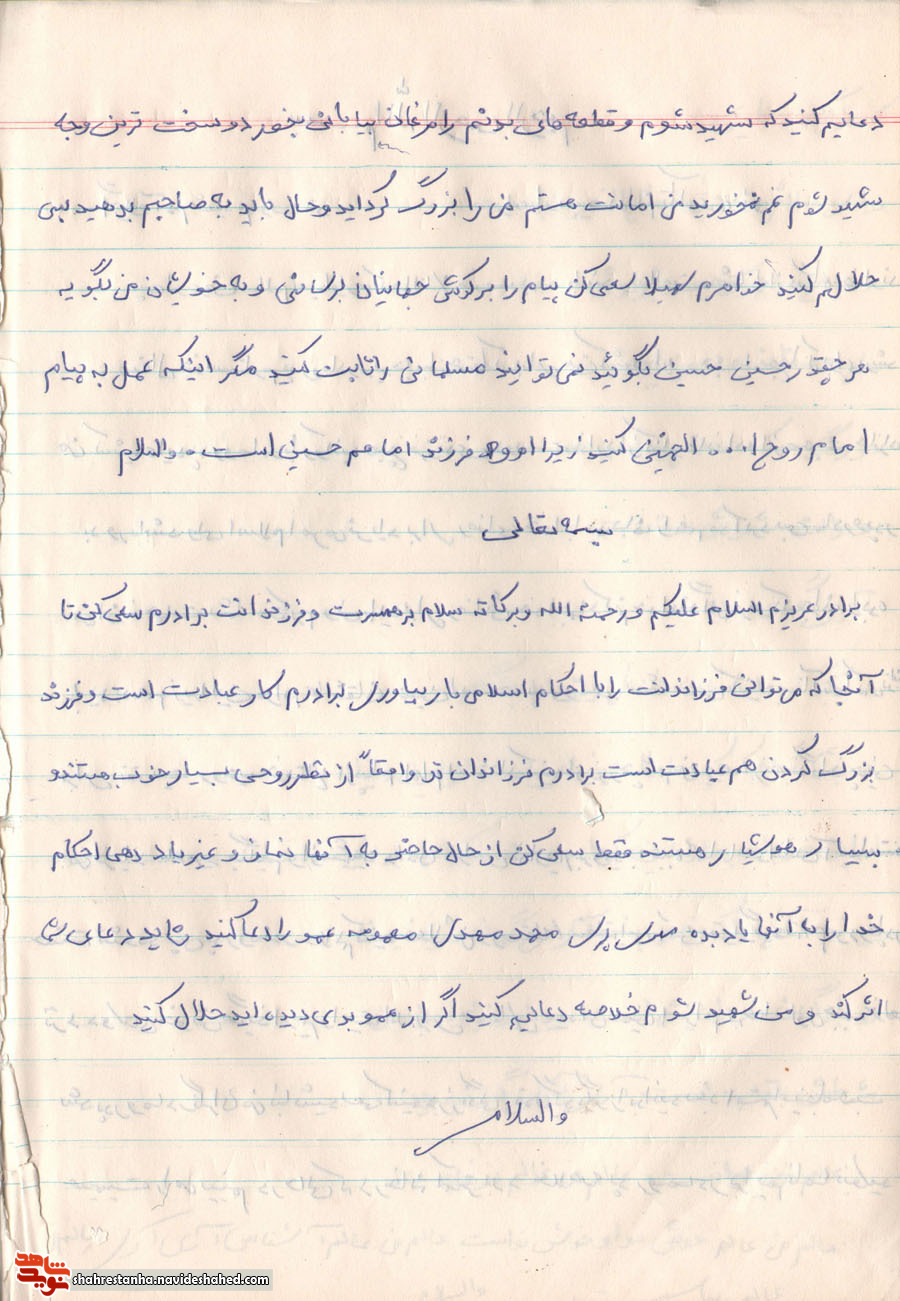 دعایم کنید که شهید شوم و قطعه های بدنم را مرغان بیابانی بخورد و سخت ترین وجه
شهید شوم غم نخورید من امانت هستم من را بزرگ کردید و حال باید به صاحبم بدهید پس
حلالم کنید خواهرم سهیلا سعی کن پیام را بر گوش جهانیان برسانی و به خویشان من بگویه
هر چقدر حسین حسین بگوئید نمی توانید مسلمانی را ثابت کنید مگر اینکه عمل به پیام
امام روح ا... الخمینی کنید زیرا او فرزند امامم حسین است. والسلام
بسمه تعالی
برادر عزیزم السلام علیکم و رحمة الله و برکاته سلام بر همسرت و فرزندانت برادرم سعی کن تا
آنجا که می توانی فرزاندنت را با احکام اسلامی بار بیاوری برادرم کار عبادت است و فرزند
بزرگ کردن هم عبادت است برادرم فرزاندان تو واقعاً از نظر روحی بسیار خوب هستند و
بسیار هوشیار هستند فقط سعی کن از حال حاضر به آنها نماز و غیر یاد دهی احکام
خدا را به آنها یاد بده مهدی معصومه عمو را دعا کنید شاید دعای شما
اثر کند و من شهید شوم خلاصه دعایم کنید اگر از عمو بدی دیده اید حلال کنید
والسلام
شاهد
نوید
shahrestanha.navideshahed.com